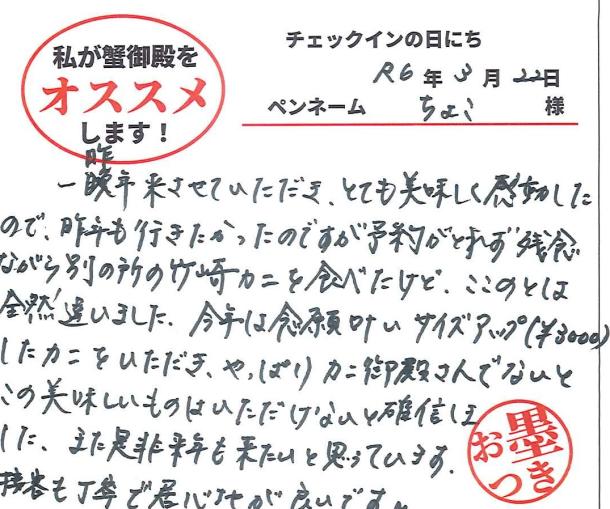 私が蟹御殿を
オススメ
します!
チェックインの日にち
R6年3月22日
ペンネーム ちょこ 様
昨
一晩年来させていただき、とても美味しく感動した
ので、昨年も行きたかったのですが予約がとれず残念
ながら別の所の竹崎カニを食べたけど、ここのとは
全然違いました。今年は念願叶いサイズアップ(¥3000)
したカニをいただき、やっぱりカニ御殿さんでないと
この美味しいものはいただけないと確信しま
した。また是非来年も来たいと思っています。
接客も丁寧で居心地が良いです。
お墨つき